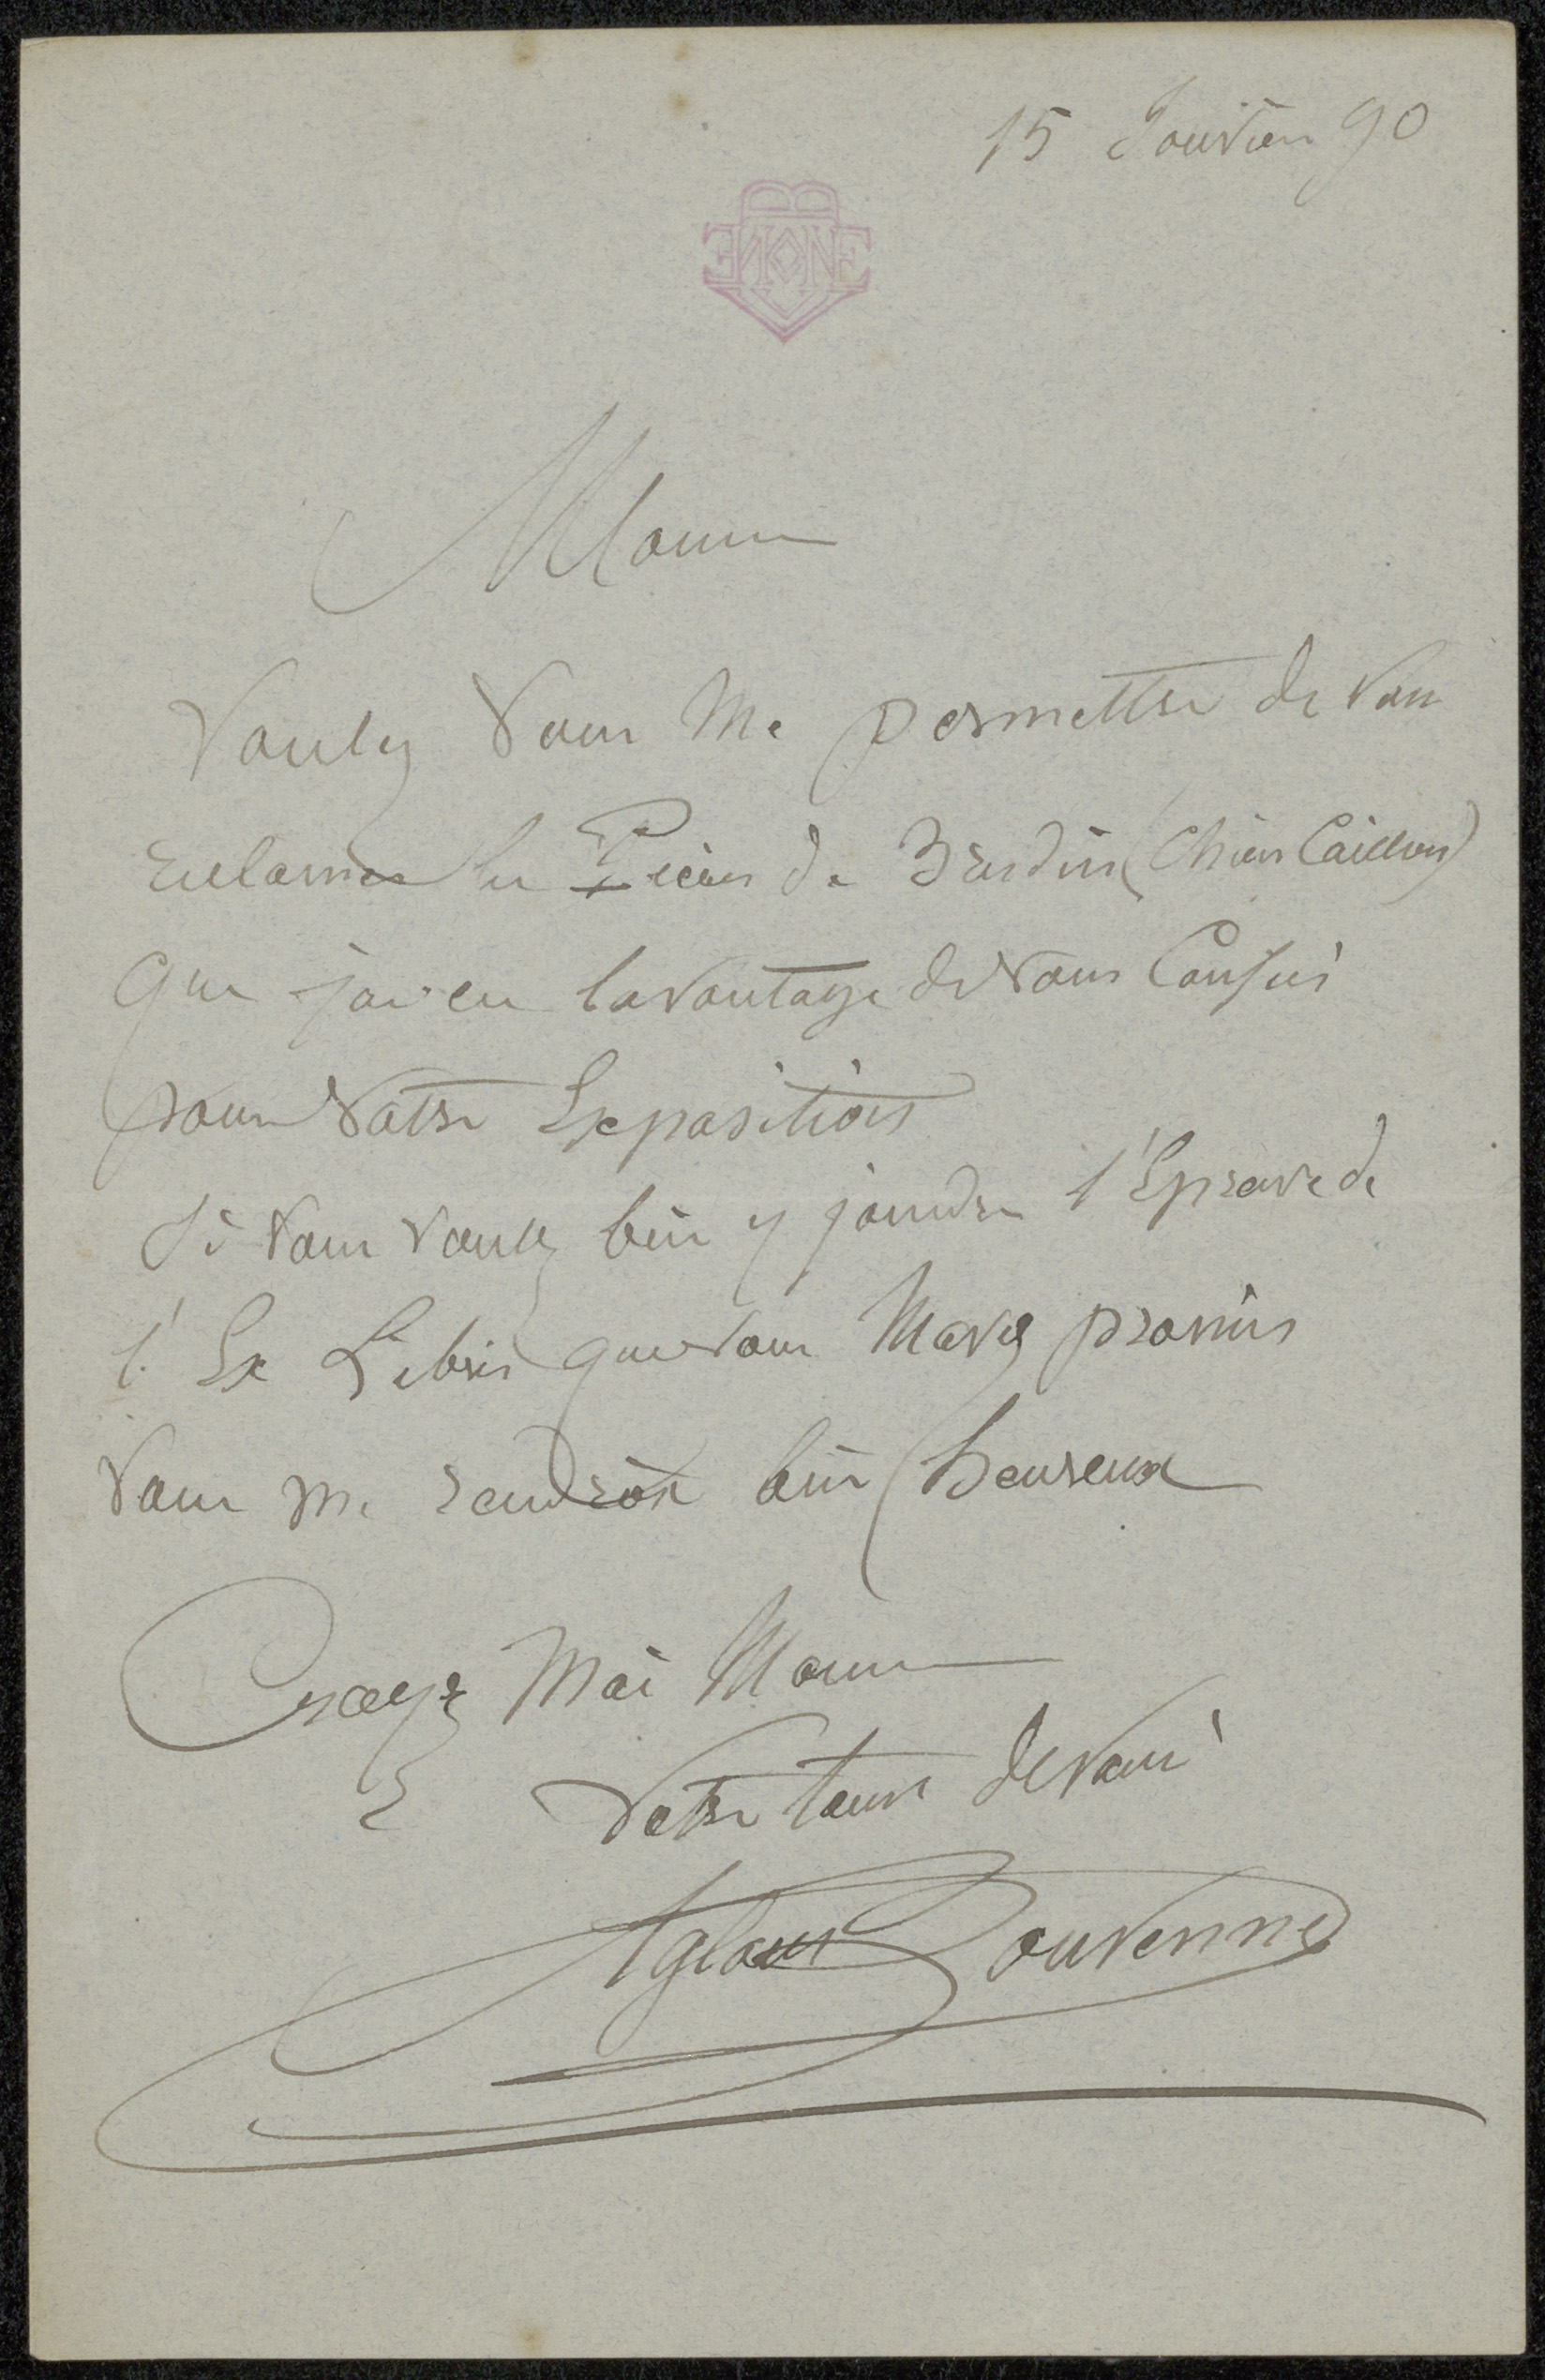 15 Janvier 90
Monsieur
Voulez Vous Me permettre de Vous
reclamer les Pièces de Bresdin (Chien Caillou)
Que j'ai eu lavantage de Vous Confier
pour Votre Exposition
Si Vous Voulez bien y joindre l'Epreuve de
l'Ex Libris que vous Mavez promis
Vous me rendrez bien heureux
Croyez Moi Monsieur
Votre tout devoué
Aglaus Bouvenne